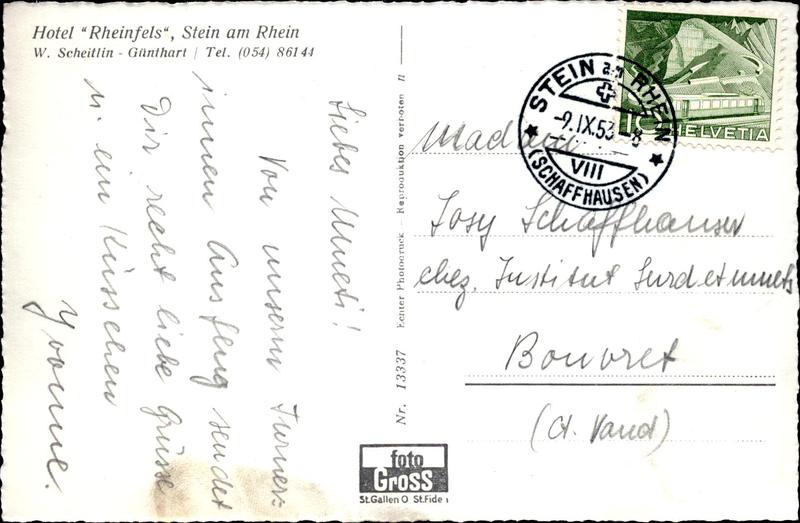 Hotel "Rheinfels", Stein am Rhein
W. Scheitlin - Günthart | Tel. (054) 86144
Liebes Mueti!
Von unserm Turner-
innen Ausflug sendet
Dir recht liebe Grüsse
u. ein Küsschen
Yvonne.
Nr. 13337 Echter Photodruck - Reproduktion verboten
foto
Gross
St.Gallen O St.Fiden
STEIN am RHEIN
-9.IX.53-8
VIII
(SCHAFFHAUSEN)
10 HELVETIA
Madame
Josy Schaffhauser
chez. Institut
Bouvret
(Ct. Vaud)